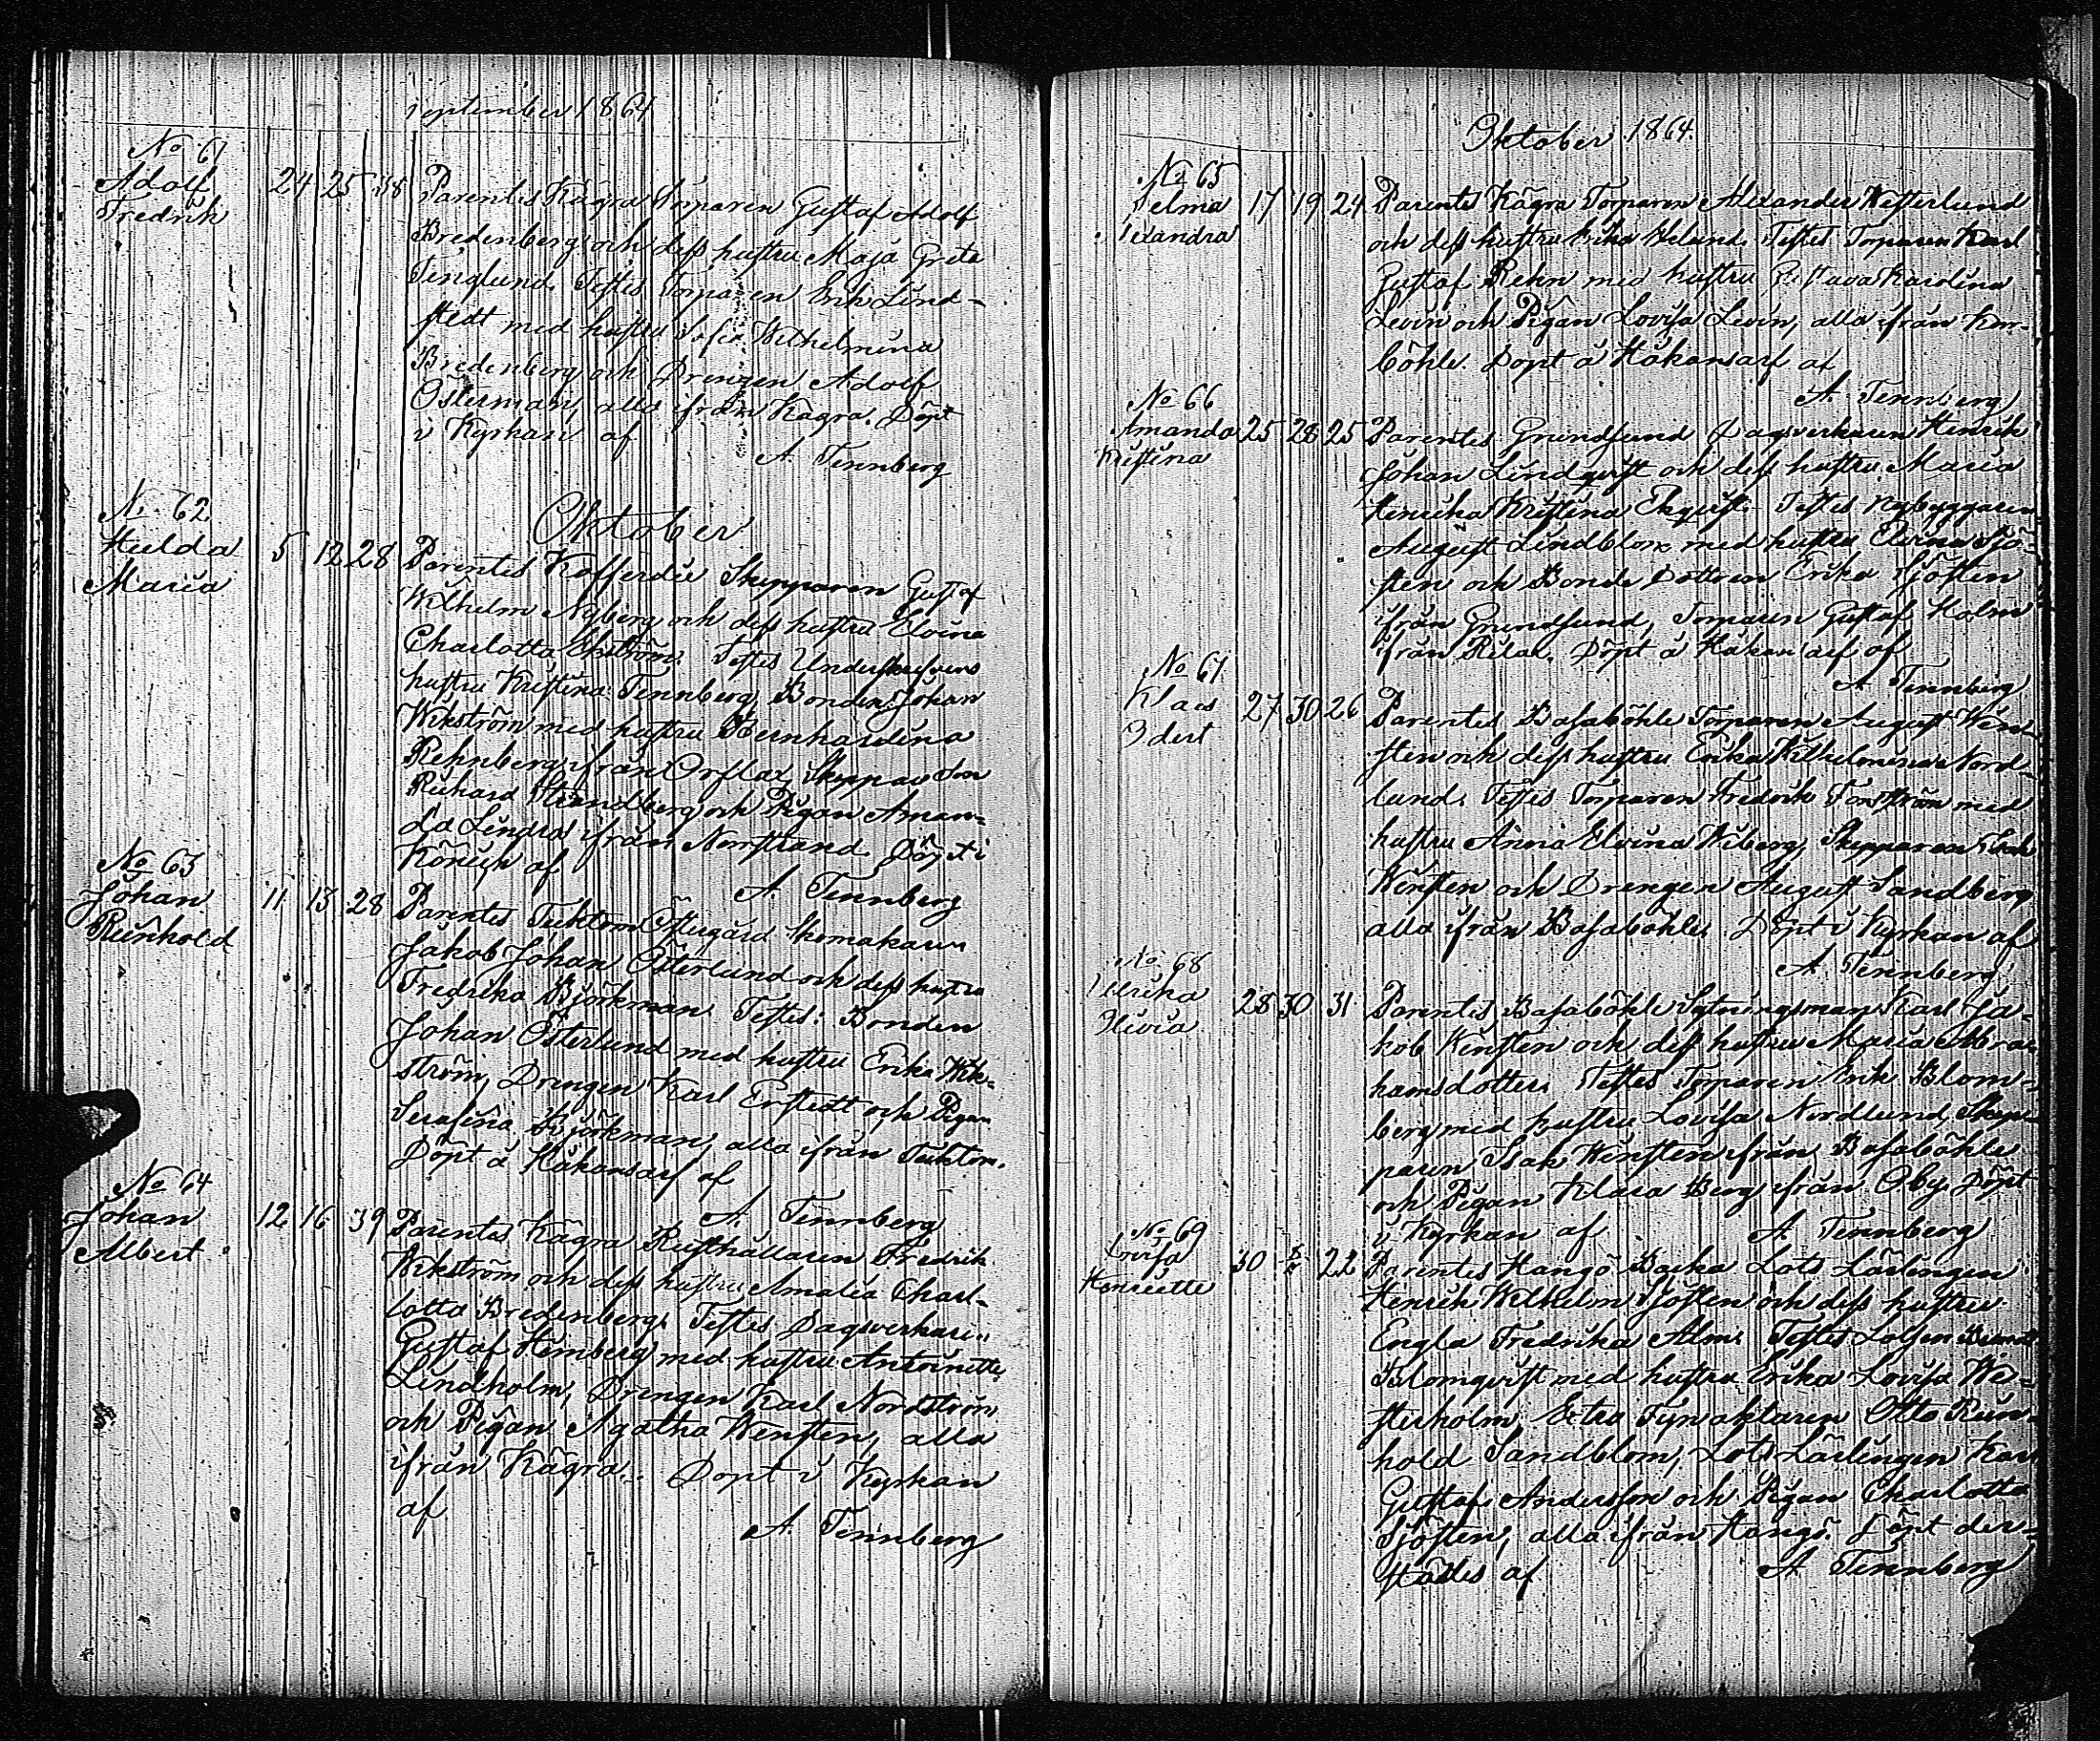 September 1864
No 61
Adolf
Fredrik
24 25 38
Parentes Kägra Torparen Gustaf Adolf
Bredenberg och dess hustru Maja Greta
Tenglund. Testes Torparen Erik Lind-
stedt med hustru Sofia Wilhelmina
Bredenberg och Drengen Adolf
Österman, alla ifrån Kägra. Döpt
i Kyrkan af
A. Tennberg
Oktober
N. 62
Hulda
Maria
5 12 28
Parentes Kofferdie Skepparen Gustaf
Wilhelm Nyberg och dess hustru Elvina
Charlotta Ekström. Testes Underskrifvens
hustru Kristina Tennberg, Bonden Johan
Wikström med hustru Bernhardina
Rehnberg ifrån Orslax, Skeppar Son
Richard Strandberg och Pigan Aman-
da Lindros ifrån Norrstrand. Döpt i
af
A. Tennberg
No 63
Johan
Reinhold
11 13 28
Parentes Tecktom Östergård Skomakaren
Jakob Johan Österlund och dess hustru
Fredrika Björkman. Testes: Bonden
Johan Österlund med hustru Erika Wik-
ström, Drengen Karl Erstedt och Pigan
Serafina Björkman, alla ifrån Tecktom.
Döpt å Håkansarf af
A. Tennberg
No 64
Johan
Albert
12 16 39
Parentes Kägra Rusthållaren Fredrik
Wikström och dess hustru Amalia Charl-
lotta Bredenberg. Testes Dagsverkaren
Gustaf Hemberg med hustru Antoinette
Lindholm, Drengen Karl Nordström
och Pigan Agatha Wensten, alla
ifrån Kägra. Döpt i Kyrkan
af
A. Tennberg
Oktober 1864.
No 65
Selma
Alexandra
17 19 24
Parentes Kägra Torparen Alexander Westerlund
och dess hustru Erika Welund. Testes Torparen Karl
Gustaf Rehn med hustru Gustava Karolina
Levin och Pigan Lovisa Levin, alla ifrån Kor-
böhle. Döpt å Håkansarf af
A. Tennberg
No 66
Amanda
Kristina
25 28 25
Parentes Grundsund Dagsverkaren Henrik
Johan Lindqvist och dess hustru Maria
Henrika Kristina Ekqvist. Testes Nybyggaren
August Lindblom med hustru Elvina Sjö-
sten och Bonde Dottren Erika Sjösten
ifrån Grundsund, Torparen Gustaf Holm
ifrån Rilax. Döpt å Håkansarf af
A Tennberg
No 67
Klaes
Edert
27 30 26
Parentes Basaböhle Torparen August Wen-
sten och dess hustru Erika Wilhelmina Nord-
lund. Testes Torparen Fredrik Forsström med
hustru Anna Elvina Wiberg, Skepparen Isak
Wensten och Drengen August Sandberg
alla ifrån Basaböhle. Döpt i Kyrkan af
A. Tennberg
No 68
Ulrika
Olivia
28 30 31
Parentes Basaböhle Sytningsman Karl Ja-
kob Wensten och dess hustru Maria Abra-
hamsdotter. Testes Torparen Erik Blom-
berg med hustru Lovisa Nordlund, Skep-
paren Isak Wensten ifrån Basaböhle
och Pigan Klara Berg ifrån Öby. Döpt
i Kyrkan af
A. Tennberg
No 69
Lovisa
Henriette
30 22
Parentes Hangö Backa Lots Lärlingen
Henrik Wilhelm Sjösten och dess hustru
Engla Fredrika Alm. Testes Lotsen
Blomqvist med hustru Erika Lovisa We-
sterholm, Extra Fyrvaktaren Otto Rein-
hold Sandblom, Lots Lärlingen Karl
Gustaf Andersson och Pigan Charlotta
Sjösten, alla ifrån Hangö. Döpt der-
städes af
A Tennberg